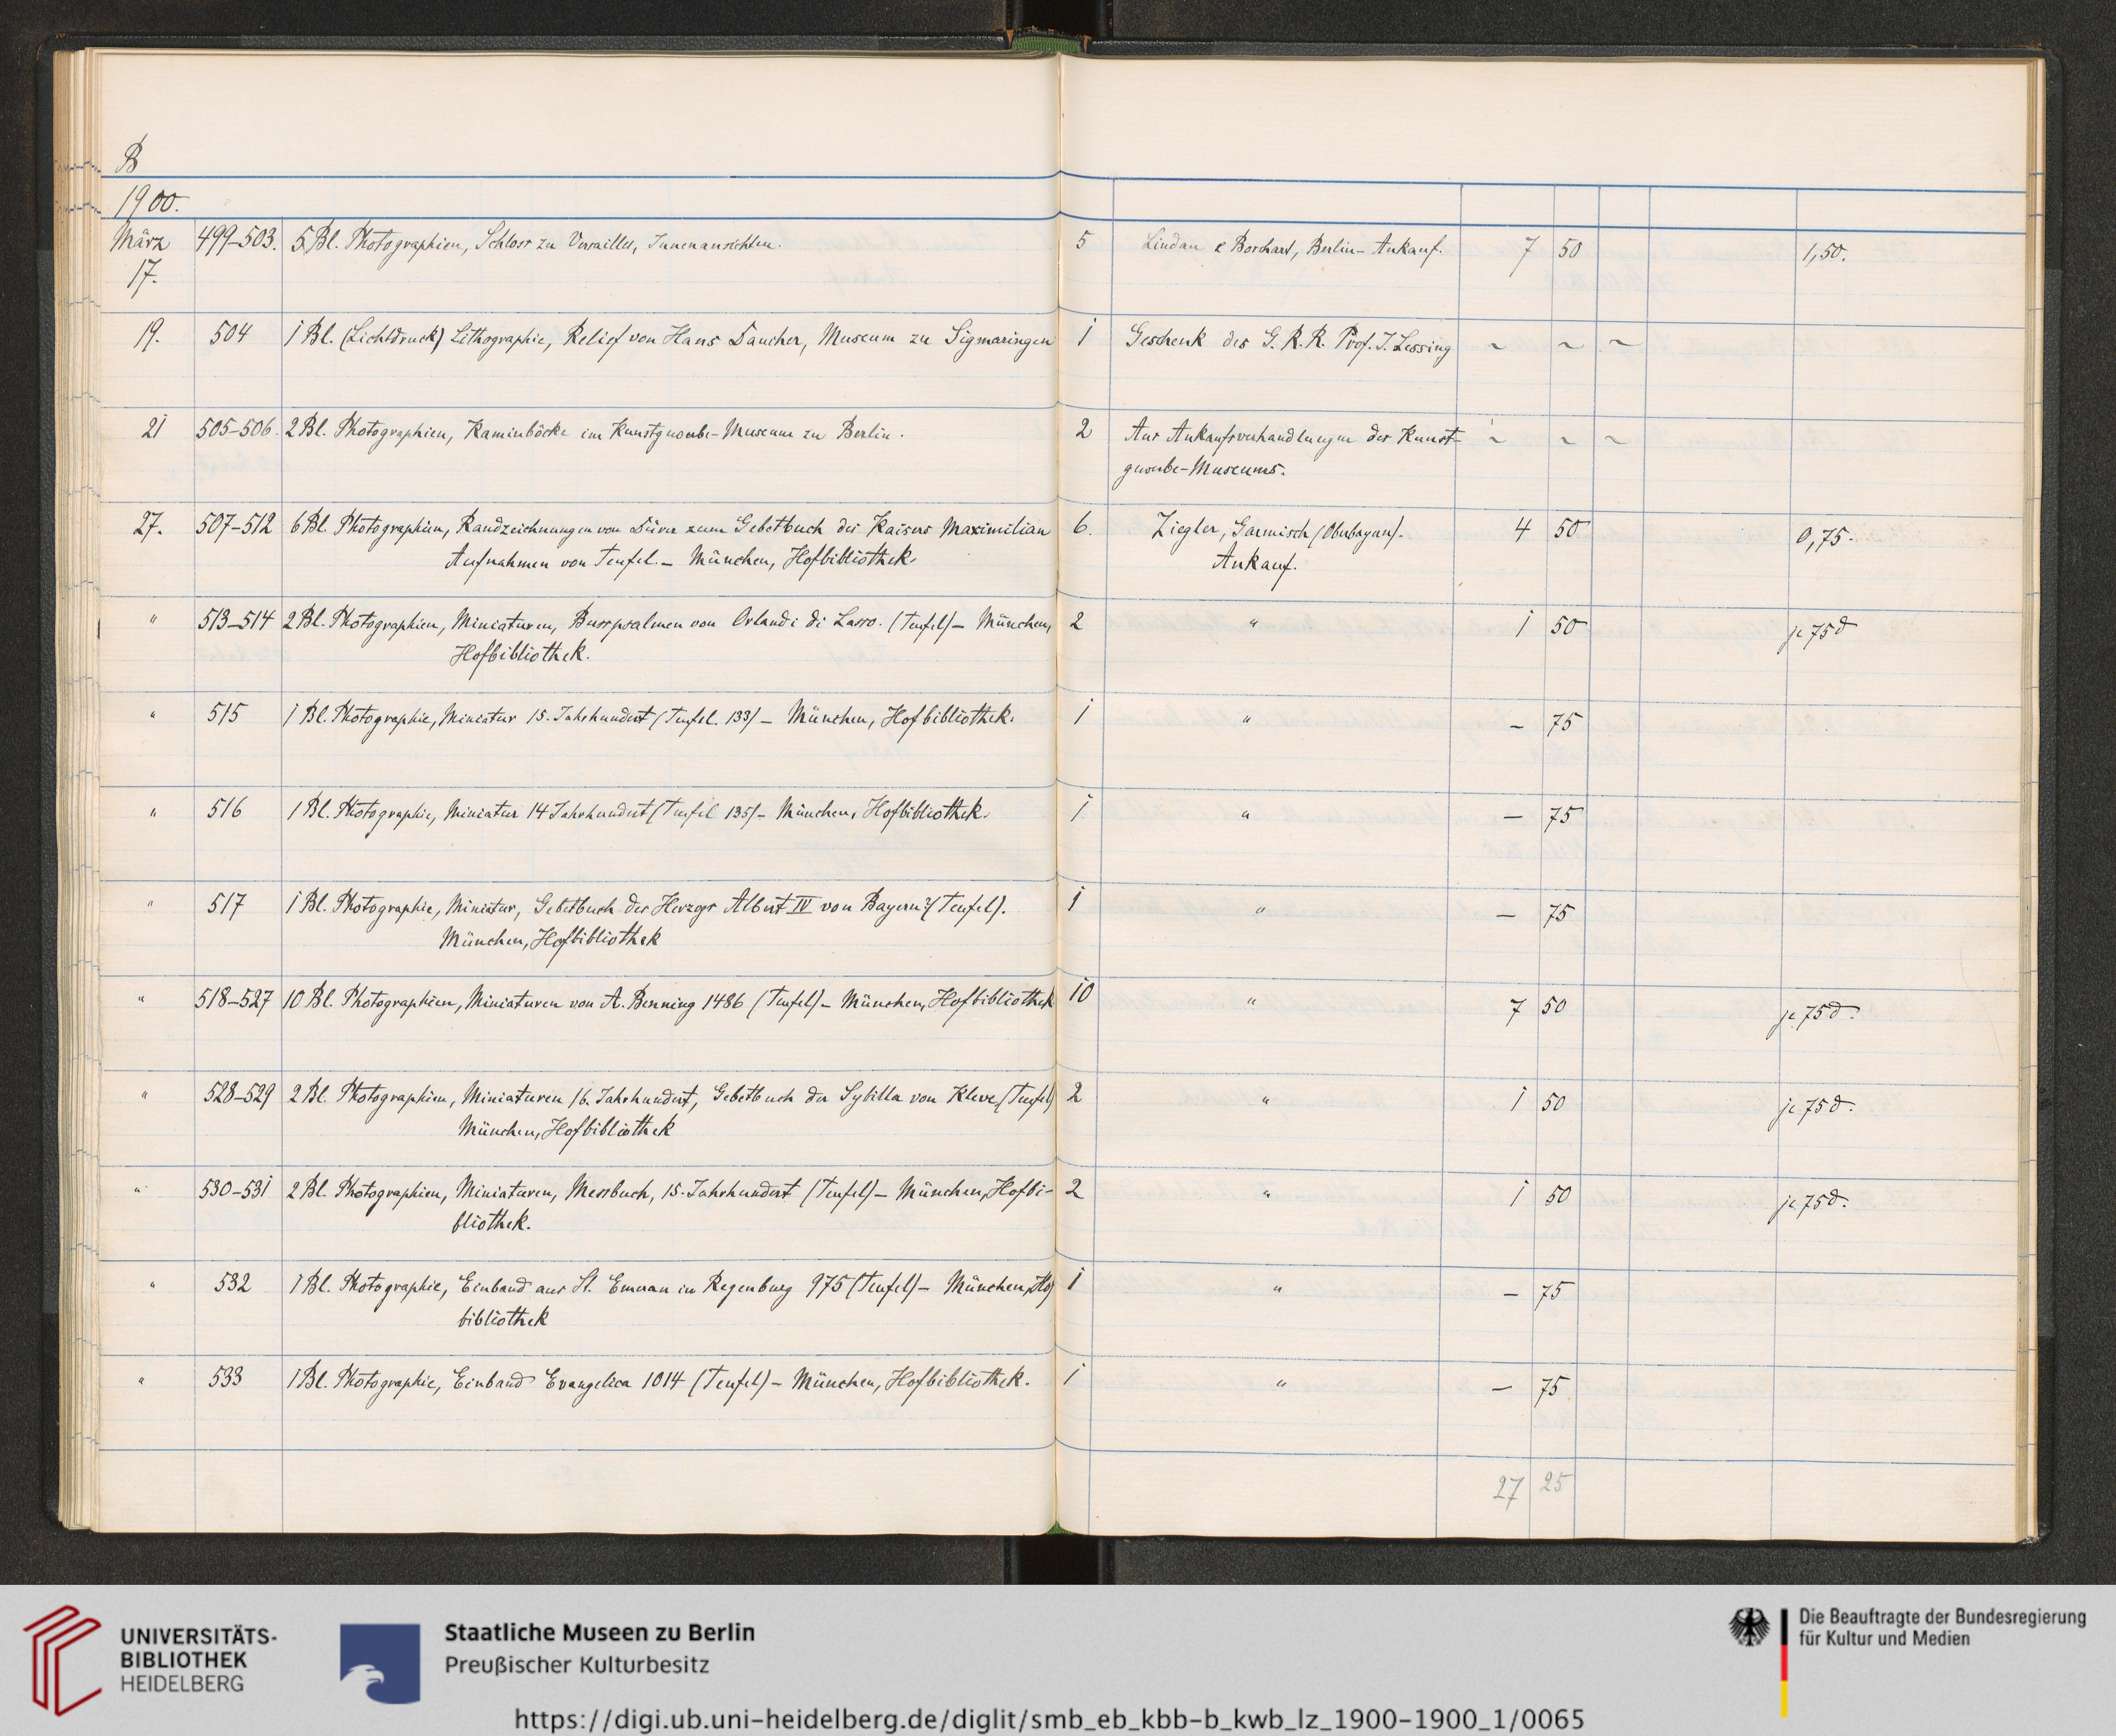 B
1900.
März 499–503. 5 Bl. Photographien, Schloss zu Versailles, Innenansichten. 5 Lindau & Borchart, Berlin – Ankauf. 7 50 1,50.
17.
19. 504 1 Bl. (Lichtdruck) Lithographie, Relief von Hans Daucher, Museum zu Sigmaringen 1 Geschenk des G. R. R. Prof. J. Lessing ~ ~ ~
21 505–506. 2 Bl. Photographien, Kaminböcke im Kunstgewerbe-Museum zu Berlin. 2 Aus Ankaufsverhandlungen des Kunst- ~ ~ ~
gewerbe-Museums.
27. 507–512 6 Bl. Photographien, Randzeichnungen von Dürer zum Gebetbuch des Kaisers Maximilian 6. Ziegler, Garmisch (Oberbayern). 4 50 0,75.
Aufnahmen von Teufel. – München, Hofbibliothek. Ankauf.
" 513–514 2 Bl. Photographien, Miniaturen, Busspsalmen von Orlandi di Lasso. (Teufel) – München, 2 " 1 50 je 75 d
Hofbibliothek.
" 515 1 Bl. Photographie, Miniatur 15. Jahrhundert (Teufel. 133) – München, Hofbibliothek. 1 " – 75
" 516 1 Bl. Photographie, Miniatur 14 Jahrhundert (Teufel 135) – München, Hofbibliothek. 1 " – 75
" 517 1 Bl. Photographie, Miniatur, Gebetbuch des Herzogs Albert IV von Bayern (Teufel). 1 " – 75
München, Hofbibliothek
" 518–527 10 Bl. Photographien, Miniaturen von A. Benning 1486 (Teufel) – München, Hofbibliothek 10 " 7 50 je 75 d.
" 528–529 2 Bl. Photographien, Miniaturen 16. Jahrhundert, Gebetbuch der Sybilla von Kleve, (Teufel) 2 " 1 50 je 75 d.
München, Hofbibliothek
" 530–531 2 Bl. Photographien, Miniaturen, Messbuch, 15. Jahrhundert (Teufel) – München, Hofbi- 2 " 1 50 je 75 d.
bliothek.
" 532 1 Bl. Photographie, Einband aus St. Emeran in Regenburg 975 (Teufel) – München, Hof 1 " – 75
bibliothek
" 533 1 Bl. Photographie, Einband Evangelica 1014 (Teufel) – München, Hofbibliothek. 1 " – 75
27 25
UNIVERSITÄTS-
BIBLIOTHEK
HEIDELBERG
Staatliche Museen zu Berlin
Preußischer Kulturbesitz
Die Beauftragte der Bundesregierung
für Kultur und Medien
https://digi.ub.uni-heidelberg.de/diglit/smb_eb_kbb-b_kwb_lz_1900-1900_1/0065